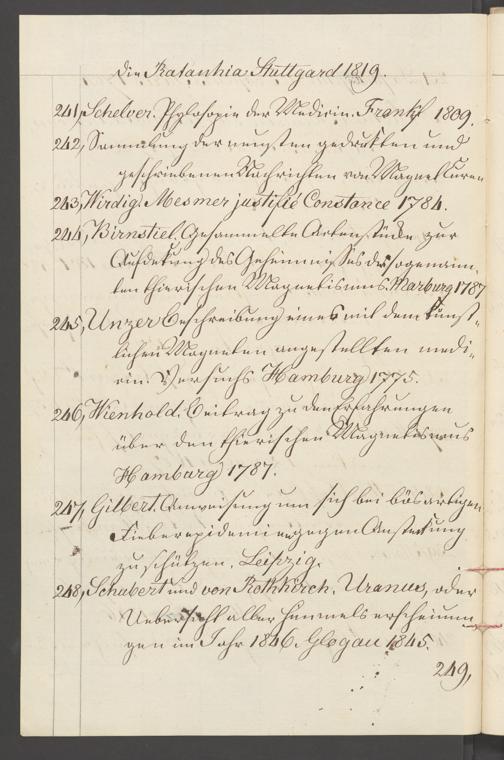 die Ratanhia Stuttgard 1819.
241, Schelver. Phylosopie der Medicin. Frankf 1809.
242, Sammlung der neuesten gedrukten und
geschriebenen Nachrichten von Magnet Curen
243, Wirdig. Mesmer justifié Constance 1784.
244, Birnstiel. Gesammelte Actenstücke zur
Aufdekung des Geheimnisses des sogenann-
ten thierischen Magnetismus. Marburg 1787
245, Unzer Beschreibung eines mit dem künst-
lichen Magneten angestellten medi-
cin. Versuchs Hamburg 1775.
246, Wienhold. Beitrag zu den Erfahrungen
über den thierischen Magnetismus
Hamburg 1787.
247, Gilbert. Anweisung um sich bei bösartigen
Fieberepidemien gegen Anstekung
zu schützen. Leipzig.
248, Schubert und von Rothkirch. Uranus, oder
Uebersicht aller Himmelserscheinun-
gen im Jahr 1846 Glogau 1845.
249,